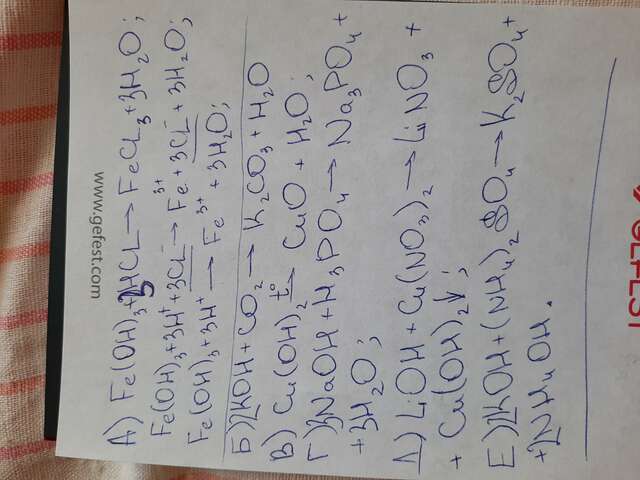 www.gefest.com
А) Fe(OH)3+3HCl→FeCl3+3H2O;
Fe(OH)3+3H⁺+3Cl⁻→Fe³⁺+3Cl⁻+3H2O;
Fe(OH)3+3H⁺→Fe³⁺+3H2O;
Б) 2KOH+CO2→K2CO3+H2O
В) Cu(OH)2 t°→ CuO+H2O;
Г) 3NaOH+H3PO4→Na3PO4+
+3H2O;
Д) LiOH+Cu(NO3)2→LiNO3+
+Cu(OH)2↓;
Е) 2KOH+(NH4)2SO4→K2SO4+
+2NH4OH.